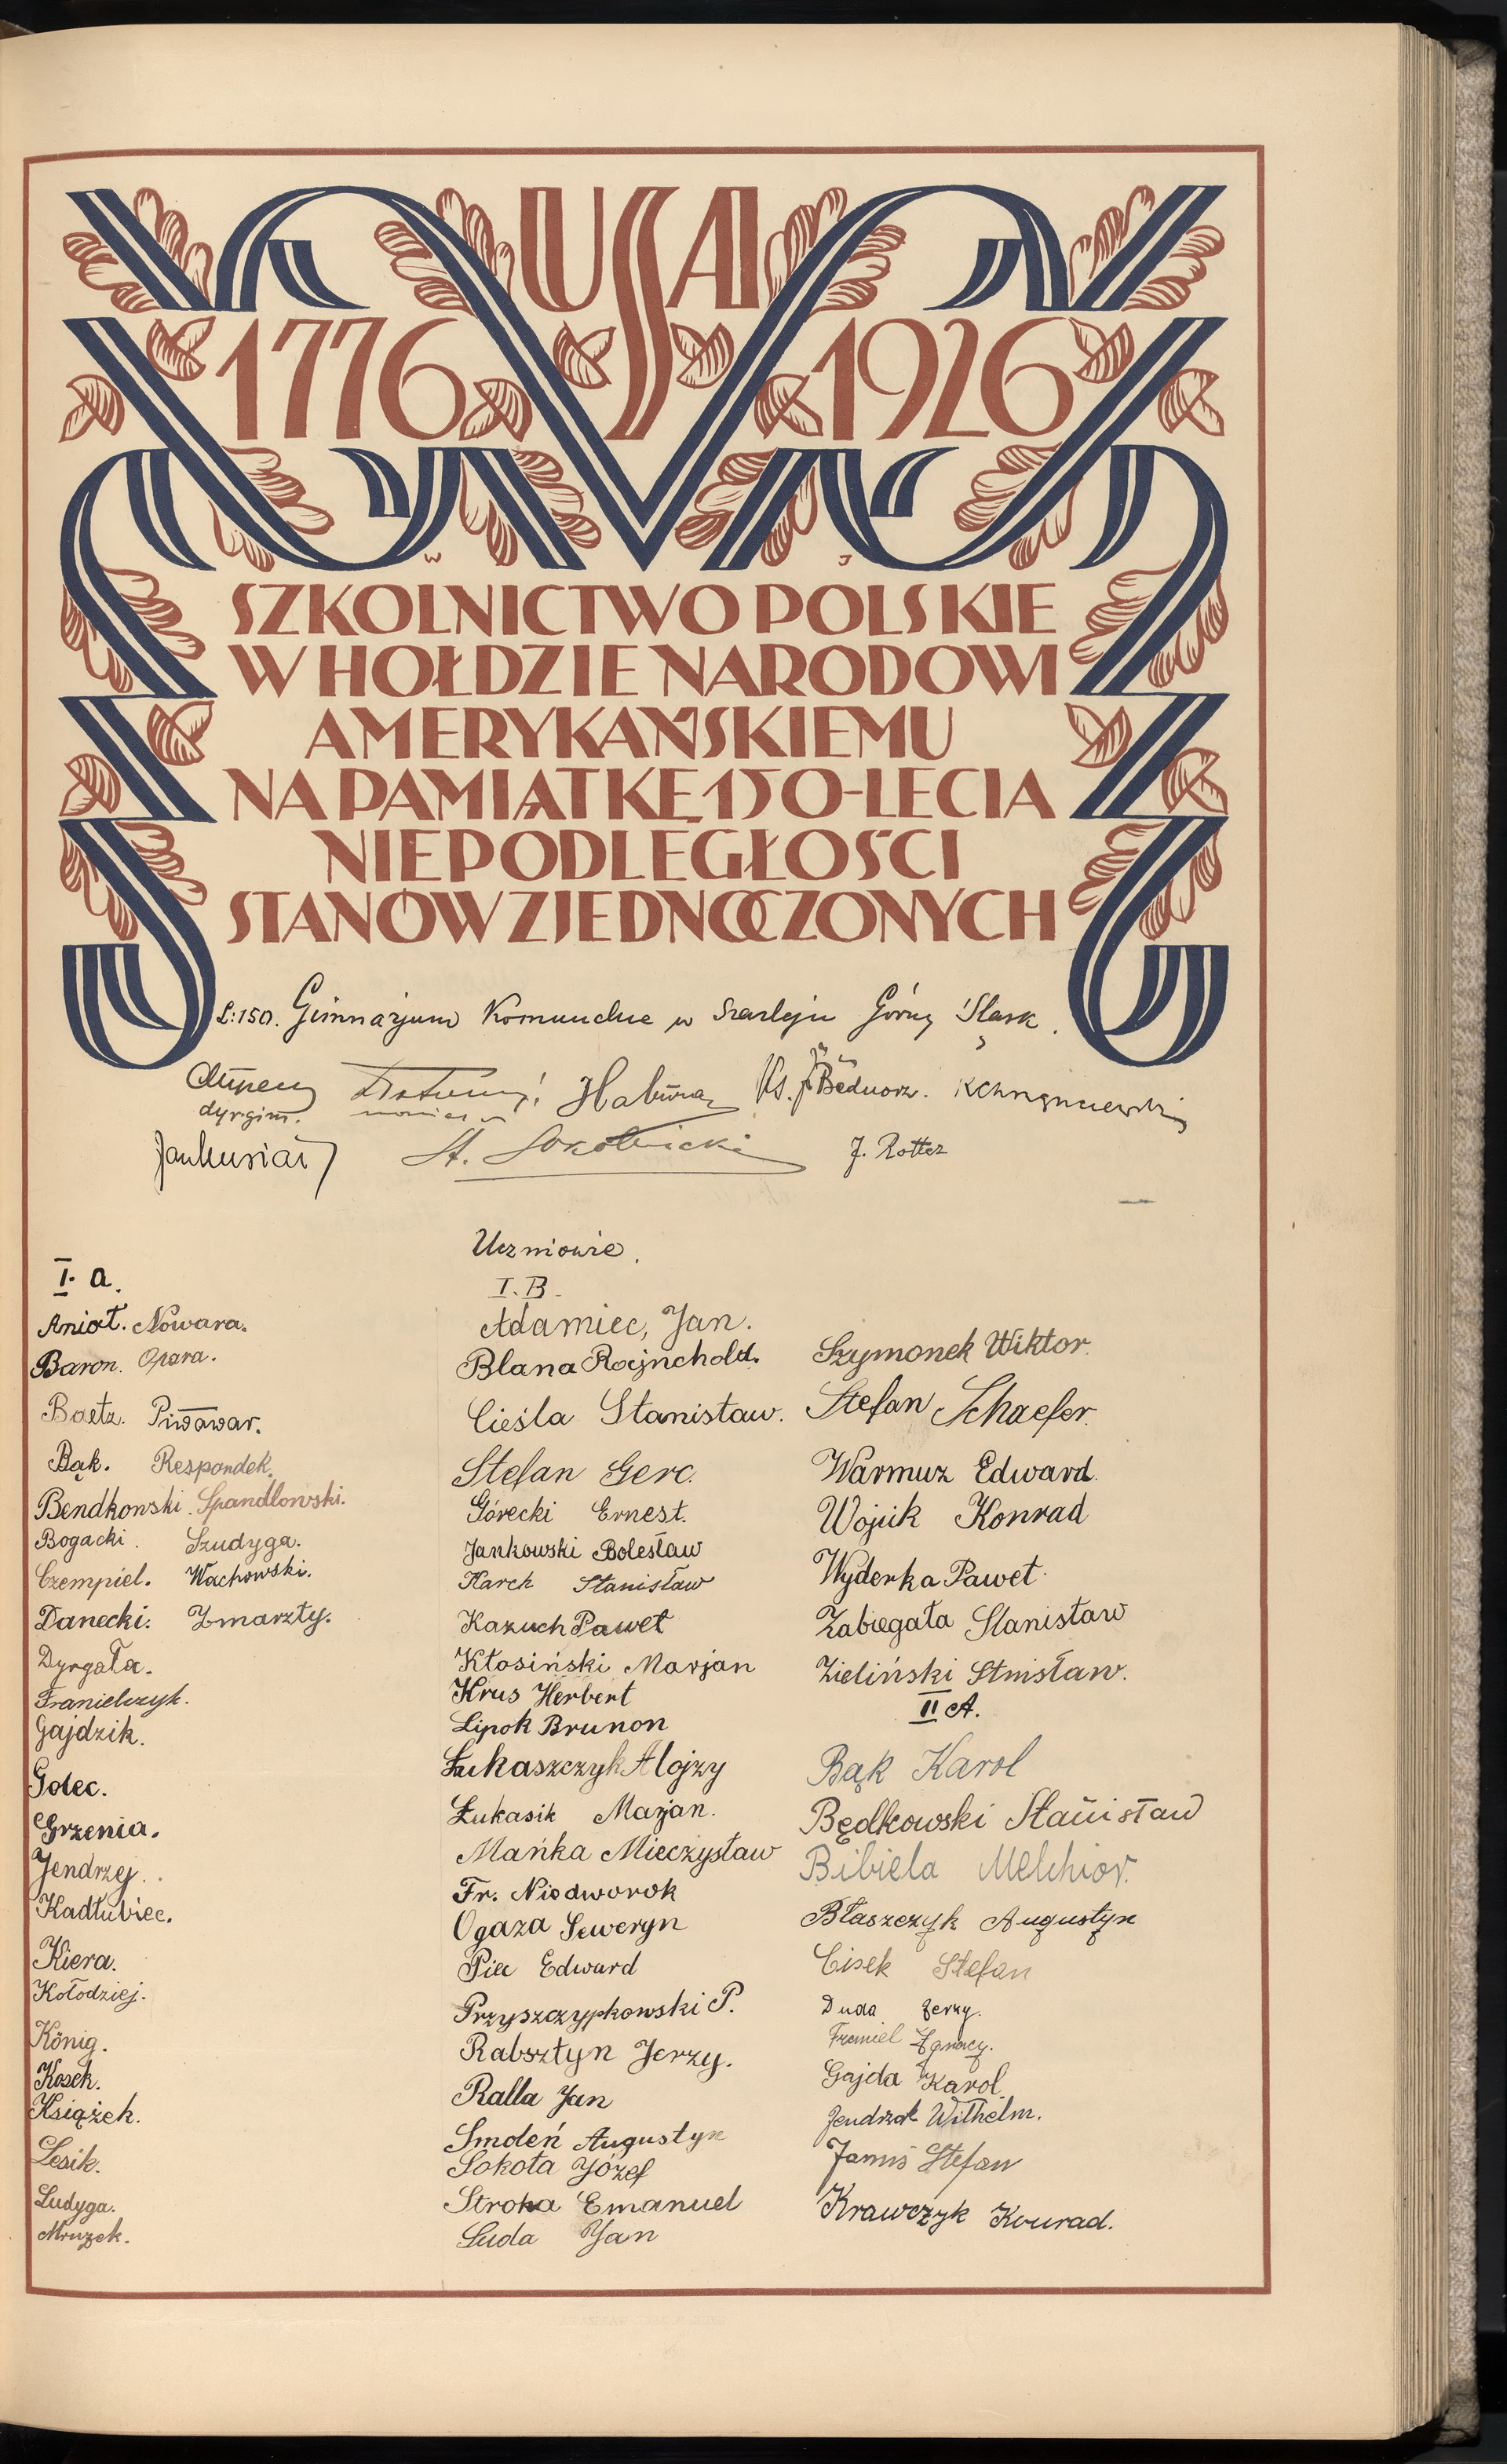 USA
1776 1926
W J
SZKOLNICTWO POLSKIE
W HOŁDZIE NARODOWI
AMERYKAŃSKIEMU
NA PAMIĄTKĘ 150-LECIA
NIEPODLEGŁOŚCI
STANÓW ZJEDNOCZONYCH
L:150. Gimnazjum Komunalne w Szarleju Górny Śląsk.
dyr. gimn.
Ks. J. Bednorz.
St. Sokolnicki
J. Rotter
Uczniowie.
I. a.
Anioł. Nowara.
Baron. Opara.
Baetz. Piwowar.
Bąk. Respondek.
Bendkonski. Spandlowski.
Bogacki. Szudyga.
Czempiel. Wachowski.
Danecki. Zmarzły.
Dyrgała.
Franielczyk.
Gajdzik.
Golec.
Grzenia.
Jendrzej.
Kadłubiec.
Kiera.
Kołodziej.
König.
Kosek.
Książek.
Lesik.
Ludyga.
Mruzek.
I. B.
Adamiec, Jan.
Blana Rajnchold.
Cieśla Stanisław.
Stefan Gerc.
Górecki Ernest.
Jankowski Bolesław
Karch Stanisław
Kazuch Paweł
Kłosiński Marjan
Krus Herbert
Lipok Brunon
Łukaszczyk Alojzy
Łukasik Marjan.
Mańka Mieczysław
Fr. Niedworok
Ogaza Seweryn
Piec Edward
Przyszczypkowski P.
Rabsztyn Jerzy.
Ralla Jan
Smoleń Augustyn
Sokoła Józef
Stroka Emanuel
Suda Jan
Szymonek Wiktor.
Stefan Schaefer.
Warmuz Edward.
Wojcik Konrad
Wyderka Paweł.
Zabiegała Stanisław
Zieliński Stnisław.
II A.
Bąk Karol
Będkowski Stanisław
Bibiela Melchior.
Błaszczyk Augustyn
Cisek Stefan
Duda Jerzy.
Franiel Ignacy.
Gajda Karol.
Jendrzok Wilhelm.
Janus Stefan
Krawczyk Konrad.